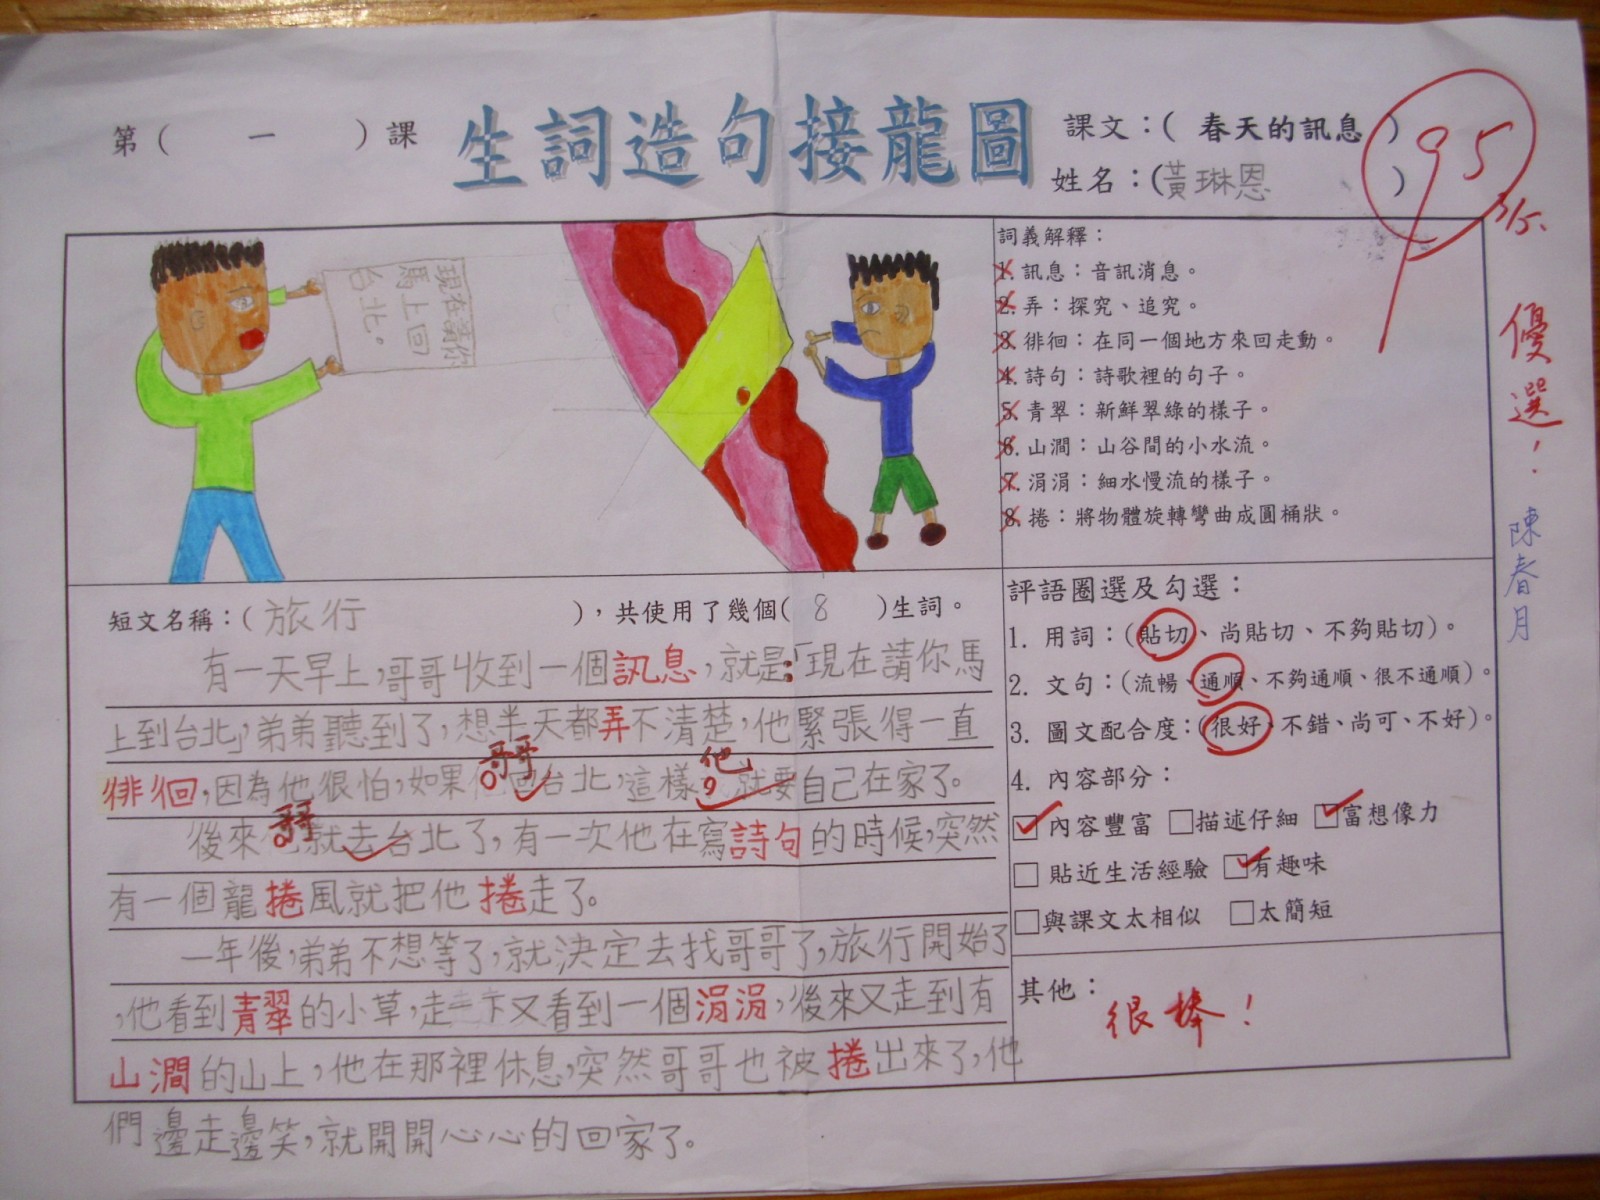 第（ 一 ）課
生詞造句接龍圖
課文：( 春天的訊息 )
姓名：(黃琳恩 )
95
3/5.
優選！
陳春月
現在請你
馬上回
台北。
詞義解釋：
1. 訊息：音訊消息。
2. 弄：探究、追究。
3. 徘徊：在同一個地方來回走動。
4. 詩句：詩歌裡的句子。
5. 青翠：新鮮翠綠的樣子。
6. 山澗：山谷間的小水流。
7. 涓涓：細水慢流的樣子。
8. 捲：將物體旋轉彎曲成圓桶狀。
短文名稱：( 旅行 )，共使用了幾個( 8 )生詞。
有一天早上，哥哥收到一個訊息，就是：「現在請你馬
上到台北」，弟弟聽到了，想半天都弄不清楚，他緊張得一直
哥哥 他
徘徊，因為他很怕，如果回台北，這樣，就要自己在家了。
哥哥
後來就去台北了，有一次他在寫詩句的時候，突然
有一個龍捲風就把他捲走了。
一年後，弟弟不想等了，就決定去找哥哥了，旅行開始了
，他看到青翠的小草，走又看到一個涓涓，後來又走到有
山澗的山上，他在那裡休息，突然哥哥也被捲出來了，他
們邊走邊笑，就開開心心的回家了。
評語圈選及勾選：
1. 用詞：(貼切、尚貼切、不夠貼切)。
2. 文句：(流暢、通順、不夠通順、很不通順)。
3. 圖文配合度：(很好，不錯、尚可、不好)。
4. 內容部分：
內容豐富 □描述仔細 富想像力
□ 貼近生活經驗 有趣味
□與課文太相似 □太簡短
其他：
很棒！